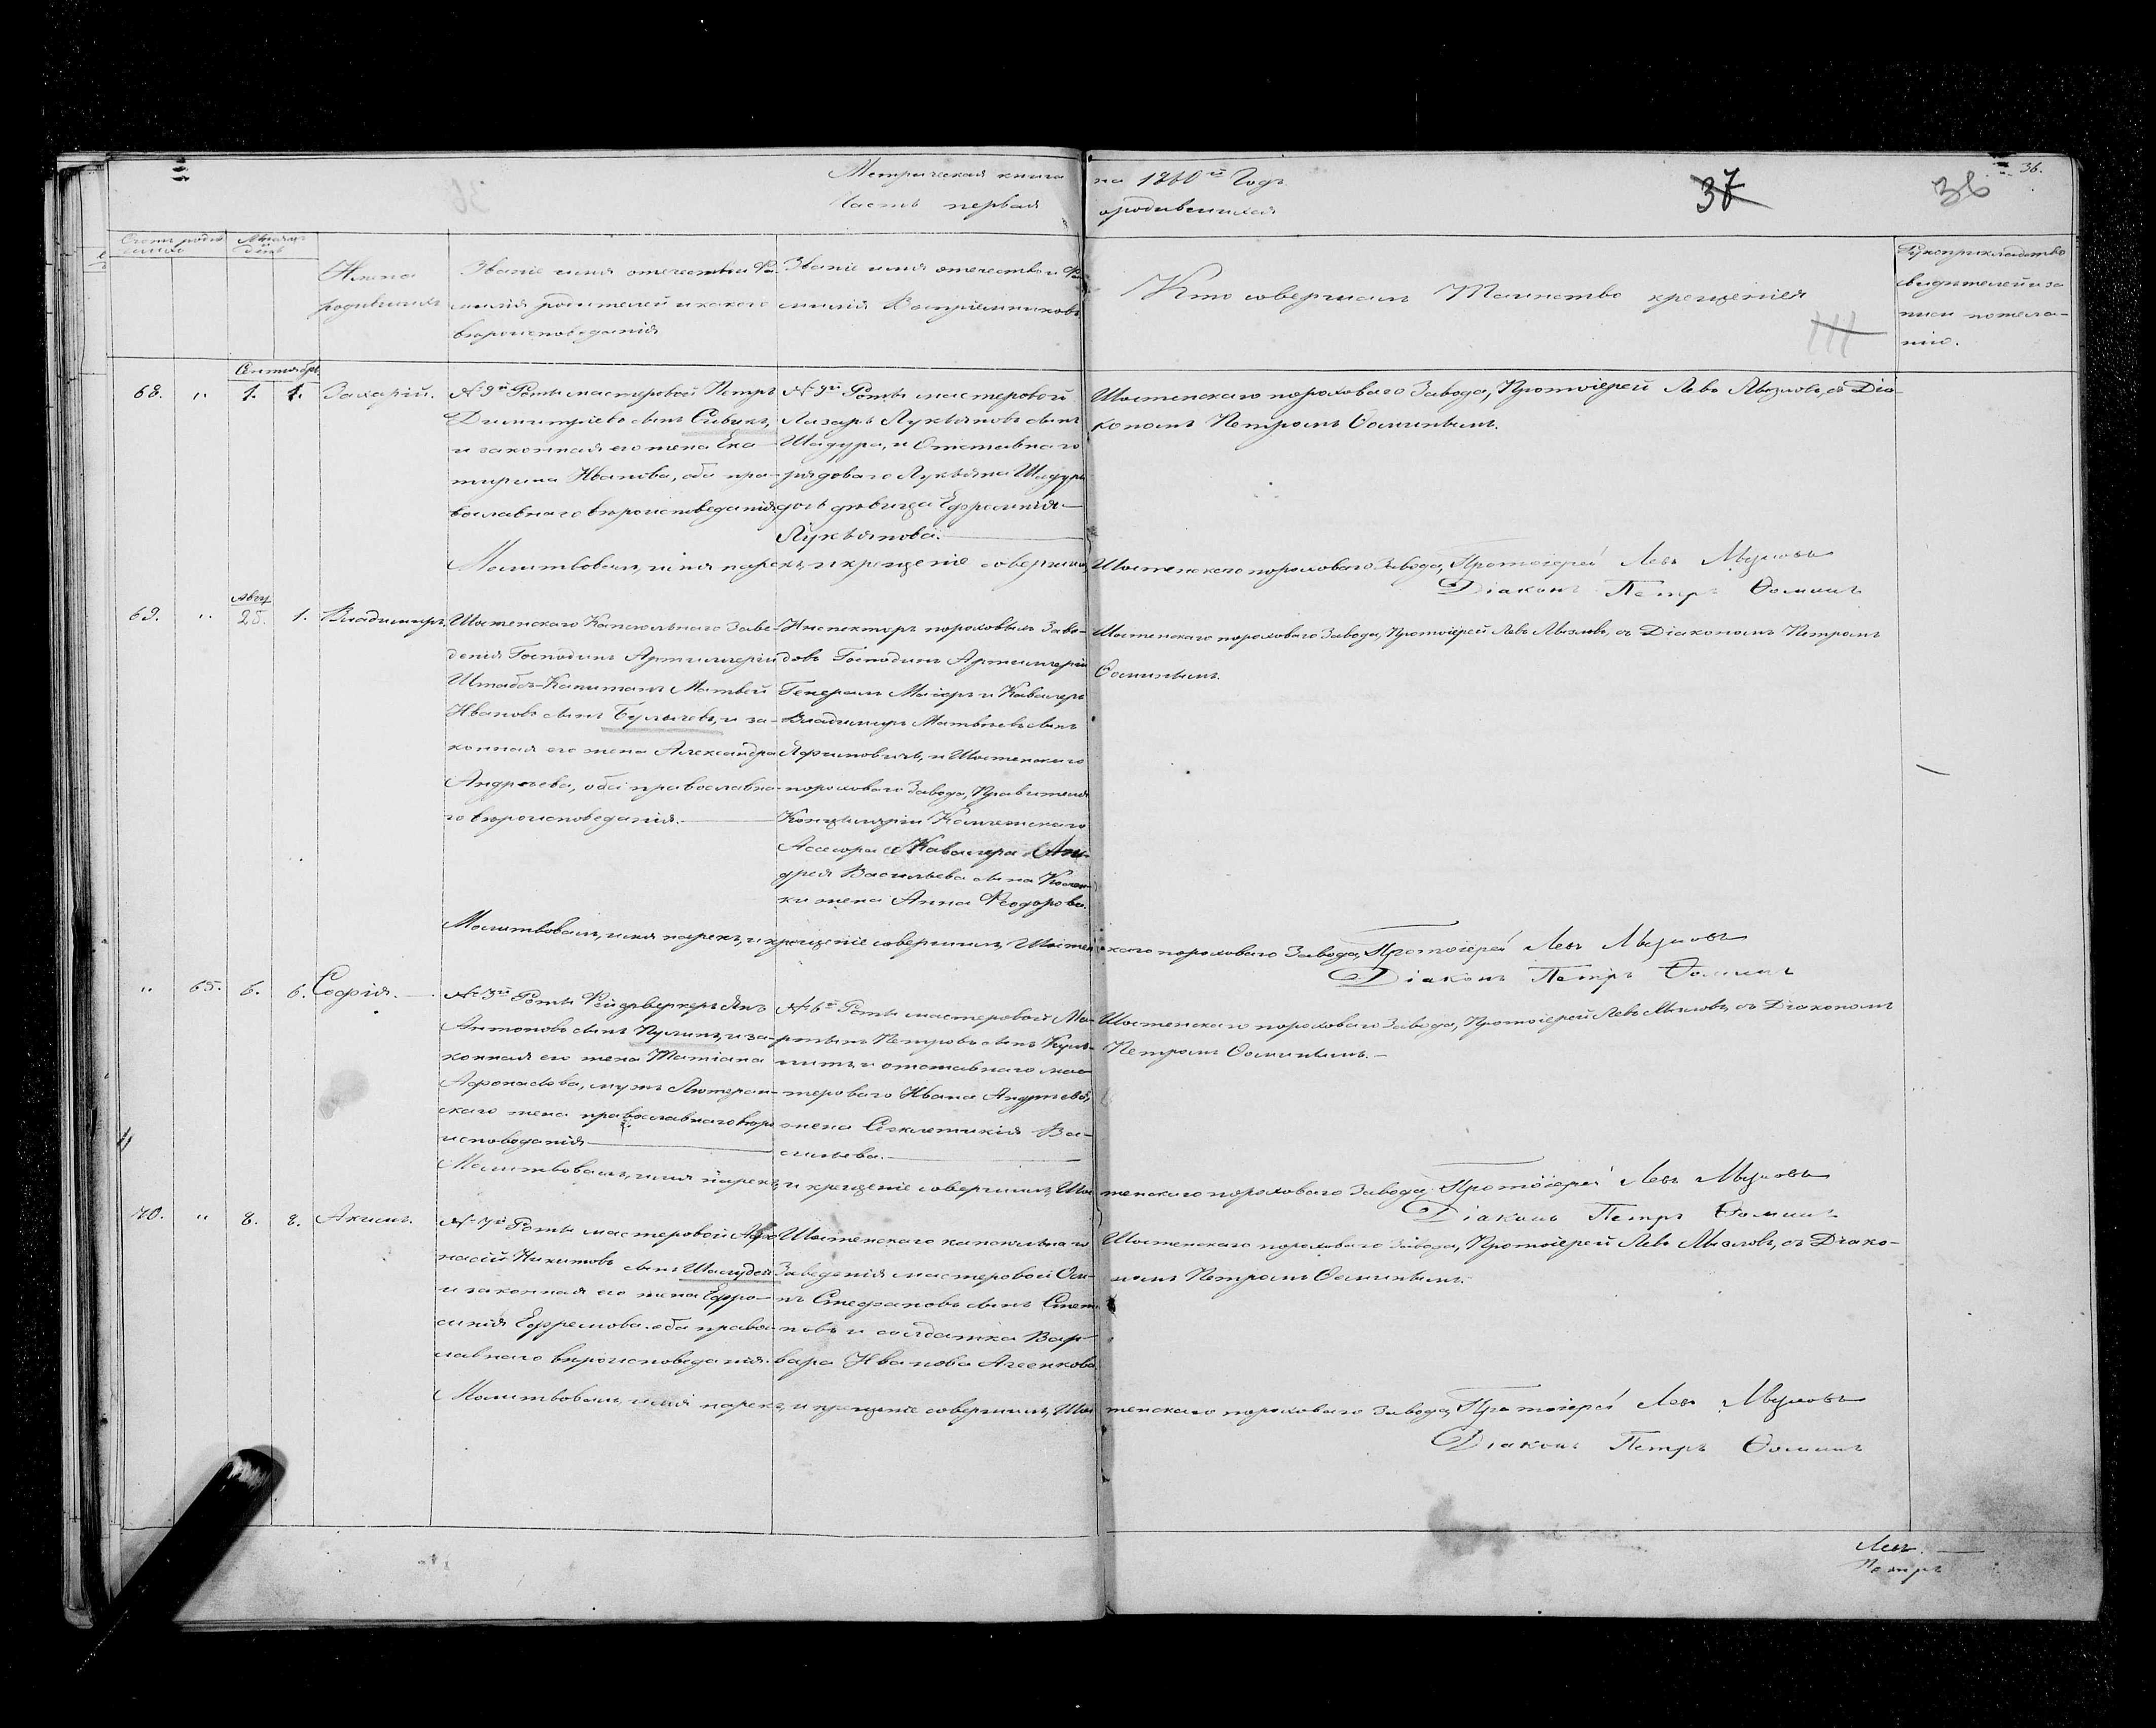 Метрическая книга на 1860й Годъ
Часть первая о родившихся
37
36
36.
Счетъ родив
шихся
Мѣсяцъ
и
день
Имена
родившихся
Званіе имя отечество и Фа-
милія родителей и какого
вѣроисповеданія
Званіе имя отечество и Фа
милія Воспріемниковъ
Кто совершалъ Таинство крещенія
Рукоприкладство
свидѣтелей и за
писи по жела-
нію.
Сентябрь
68. " 1. 1. Захарій.
№ 9й Роты мастеровой Петръ
Димитріевъ сынъ Сивикъ,
и законная его жена Ека-
тирина Иванова, оба пра-
вославнаго вѣроисповеданія
№ 9й Роты мастеровой
Лазарь Лукьяновъ сынъ
Шадура, и Отставнаго
рядоваго Лукьяна Шадуры
дочь дѣвица Ефросинія
Лукьянова.
Шостенскаго пороховаго Завода, Протоіерей Левъ Мызловъ, съ Діа-
кономъ Петромъ Ѳоминымъ.
Молитвовалъ, имя нарекъ, и крещеніе совершилъ, Шостенскаго пороховаго Завода, Протоіерей Левъ Мызловъ
Діаконъ Петръ Ѳоминъ
Авгу
69. " 25. 1. Владимиръ.
Шостенскаго Капсюльнаго Заве-
денія Господинъ Артиллеріи
Штабсъ-Капитанъ Матвей
Ивановъ сынъ Булычевъ, и за-
конная его жена Александра
Андреева, оба православна-
го вѣроисповеданія.
Инспекторъ пороховыхъ Заво-
довъ Господинъ Артиллеріи
Генералъ Маіоръ и Кавалеръ
Владимиръ Матвѣевъ сынъ
Яфимовичъ, и Шостенскаго
пороховаго Завода, Правителя
Канцеляріи Коллежскаго
Асесора и Кавалера Ан-
дрея Васильева сына
жена Анна Ѳеодорова.
Шостенскаго пороховаго Завода, Протоіерей Левъ Мызловъ, съ Діакономъ Петромъ
Ѳоминымъ.
Молитвовалъ, имя нарекъ, и крещеніе совершилъ, Шостенскаго пороховаго Завода, Протоіерей Левъ Мызловъ
Діаконъ Петръ Ѳоминъ
" 65. 6. 6. Софія.
№ 3й Роты Фейдверкеръ Янъ
Антоновъ сынъ Пулинъ, и за-
конная его жена Татіана
Афонасьева, мужъ Лютеран-
скаго жена православнаго вѣро
исповеданія
№ 6й Роты мастеровой Ма-
ртынъ Петровъ сынъ
и отставнаго мас
тероваго Ивана Андреева,
жена Секлетикія Ва-
сильева.
Шостенскаго пороховаго Завода, Протоіерей Левъ Мызловъ, съ Діакономъ
Петромъ Ѳоминымъ.
Молитвовалъ, имя нарекъ, и крещеніе совершилъ, Шостенскаго пороховаго Завода, Протоіерей Левъ Мызловъ
Діаконъ Петръ Ѳоминъ
70. " 8. 8. Акимъ.
№ 7й Роты мастеровой Афо
насій Никитовъ сынъ Шалудей
и законная его жена Ефро-
синія Ефремова. оба правос
лавнаго вѣроисповеданія.
Шостенскаго капсюльнаго
Заведенія мастеровой Оси-
пъ Стефановъ сынъ Степа
новъ и солдатка Вар-
вара Иванова Агеенкова.
Шостенскаго пороховаго Завода, Протоіерей Левъ Мызловъ, съ Діако-
номъ Петромъ Ѳоминымъ.
Молитвовалъ, имя нарекъ, и крещеніе совершилъ, Шостенскаго пороховаго Завода, Протоіерей Левъ Мызловъ
Діаконъ Петръ Ѳоминъ
Левъ.
Петръ